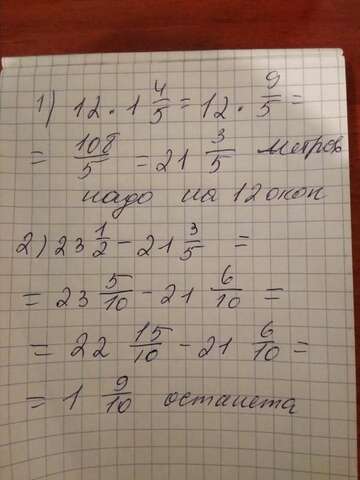 1) 12 · 1 4/5 = 12 · 9/5 =
= 108/5 = 21 3/5 метров
надо на 12 окон
2) 23 1/2 - 21 3/5 =
= 23 5/10 - 21 6/10 =
= 22 15/10 - 21 6/10 =
= 1 9/10 останета